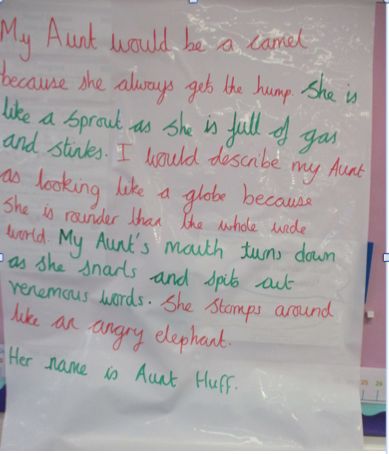 My Aunt would be a camel
because she always gets the hump. She is
like a sprout as she is full of gas
and stinks. I would describe my Aunt
as looking like a globe because
she is rounder than the whole wide
world. My Aunt's mouth turns down
as she snarls and spits out
venemous words. She stomps around
like an angry elephant.
Her name is Aunt Huff.
25 26